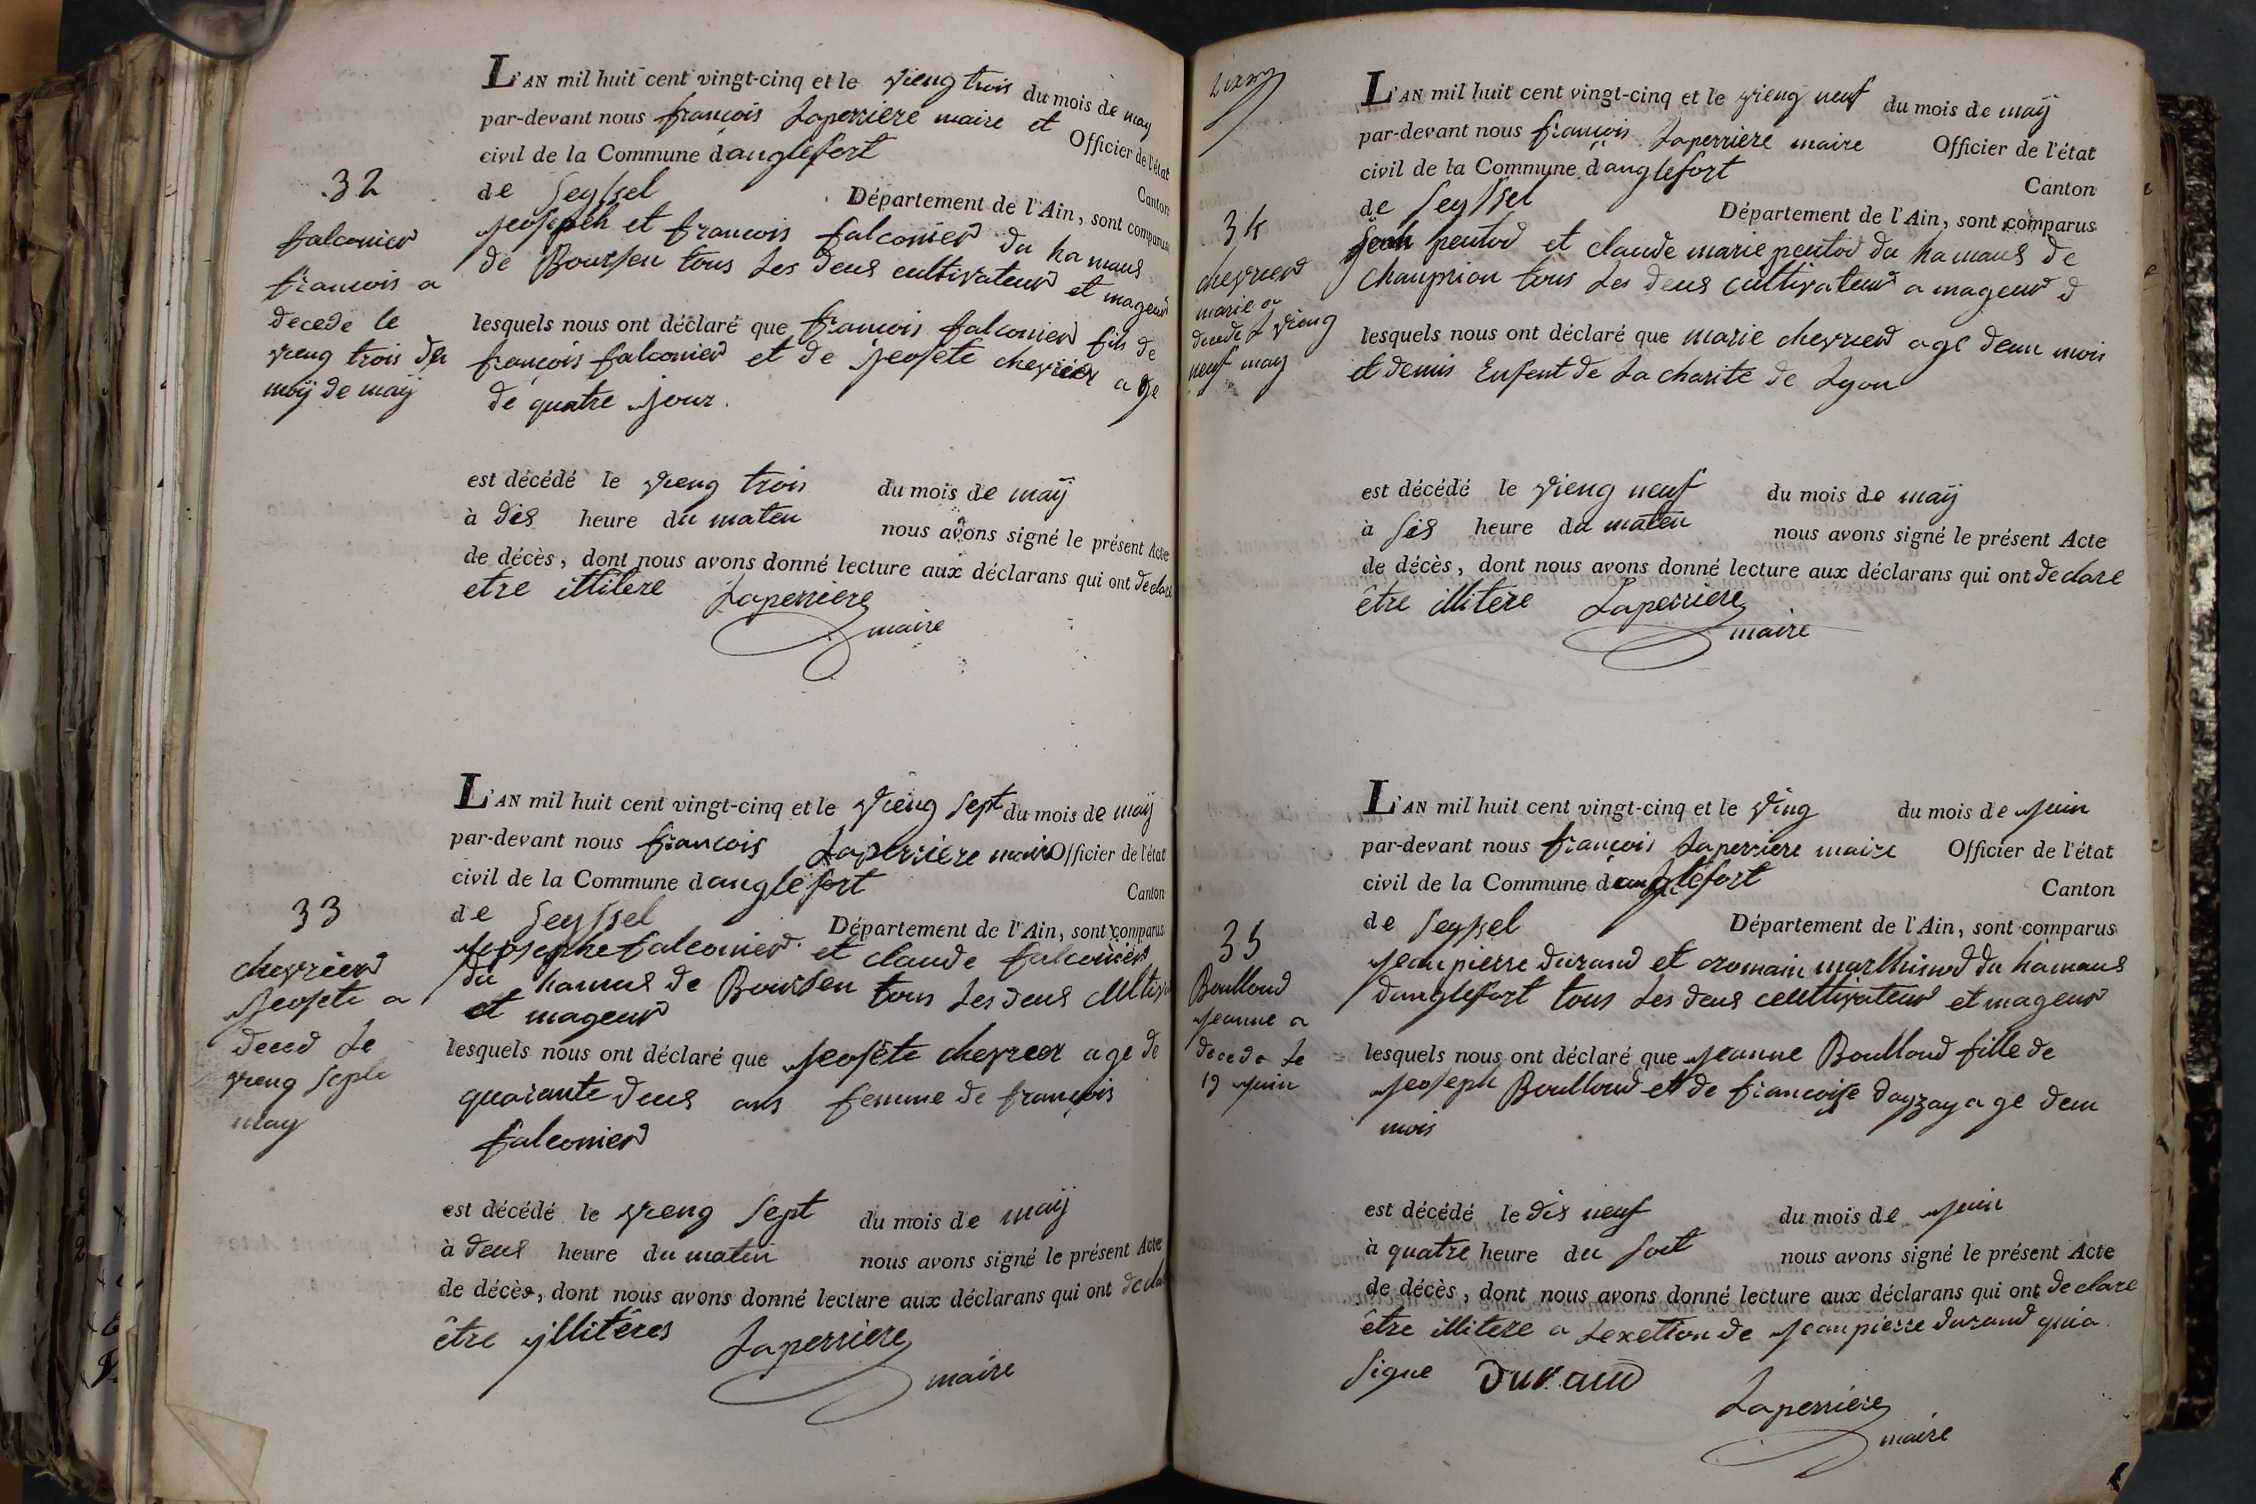 L'AN mil huit cent vingt-cinq et le vieng trois du mois de may
par-devant nous françois Laperriere maire et Officier de l'état
civil de la Commune d'anglefort Canton
de Seyssel Département de l'Ain, sont comparus
Jeosepeh et francois falconier du hamaus
de Boursen tous Les deus cultivateur et mageur
lesquels nous ont déclaré que françois falconier fils de
françois falconier et de Jeosete chevrier a ge
de quatre Jour.
est décédé le vieng trois du mois de maÿ
à dis heure du maten nous avons signé le présent Acte
de décès, dont nous avons donné lecture aux déclarans qui ont declare
etre illitere Laperriere
maire
32
falconier
francois a
decede le
vieng trois du
moÿ de maÿ
L'AN mil huit cent vingt-cinq et le vieng sept du mois de maÿ
par-devant nous françois Laperriere maire Officier de l'état
civil de la Commune d'anglefort Canton
de Seyssel Département de l'Ain, sont comparus
Jeosephe falconier et claude falconier
du hamus de Boursen tous Les deus
et mageur
lesquels nous ont déclaré que Jeosete chevrier age de
quarante deus ans femme de françois
falconier
est décédé le vieng sept du mois de maÿ
à deus heure du matin nous avons signé le présent Acte
de décès, dont nous avons donné lecture aux déclarans qui ont decla
être jllitéres Laperriere
maire
33
chevrier
Jeosete a
deced Le
vieng septe
may
L'AN mil huit cent vingt-cinq et le vieng neuf du mois de maÿ
par-devant nous françois Laperriere maire Officier de l'état
civil de la Commune d'anglefort Canton
de Seyssel Département de l'Ain, sont comparus
Jean peutod et claude marie peutod du hamaus de
Chanprion tous Les deus cultivateur a mageur
lesquels nous ont déclaré que marie chevrier age deun mois
et demis Enfent de La charité de Lyon
est décédé le vieng neuf du mois de maÿ
à sis heure du maten nous avons signé le présent Acte
de décès, dont nous avons donné lecture aux déclarans qui ont declare
être illitere Laperriere
maire
34
chevrier
marie a
decede L vieng
neuf may
L'AN mil huit cent vingt-cinq et le ving du mois de Juin
par-devant nous françois Laperriere maire Officier de l'état
civil de la Commune d'anglefort Canton
de Seyssel Département de l'Ain, sont comparus
Jeanpierre durand et romain marthinod du hamaus
danglefort tous Les deus ceultivateur et mageur
lesquels nous ont déclaré que Jeanne Boulloud fille de
Jeoseph Boulloud et de francoise dayzay age deun
mois
est décédé le dis neuf du mois de Juin
à quatre heure du soit nous avons signé le présent Acte
de décès, dont nous avons donné lecture aux déclarans qui ont declare
être illitere a Lexetion de Jeanpierre durand qui a
signe Durand
Laperriere
maire
35
Boulloud
Jeanne a
decede Le
19 Juin